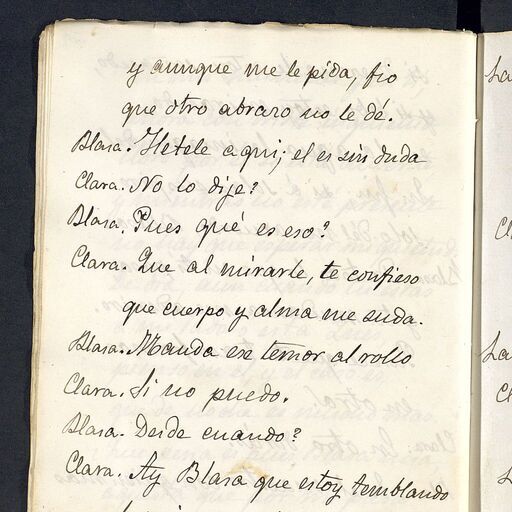 y aunque me le pida, fio
que otro abrazo no le dé.
Blasa. Hetele aqui; el es sin duda
Clara. No lo dije?
Blasa. Pues qué es eso?
Clara. Que al mirarle, te confieso
que cuerpo y alma me suda.
Blasa. Manda ese temor al rollo
Clara. Si no puedo.
Blasa. Desde cuando?
Clara. Ay Blasa que estoy temblando
La
Cl
La
Cl
L